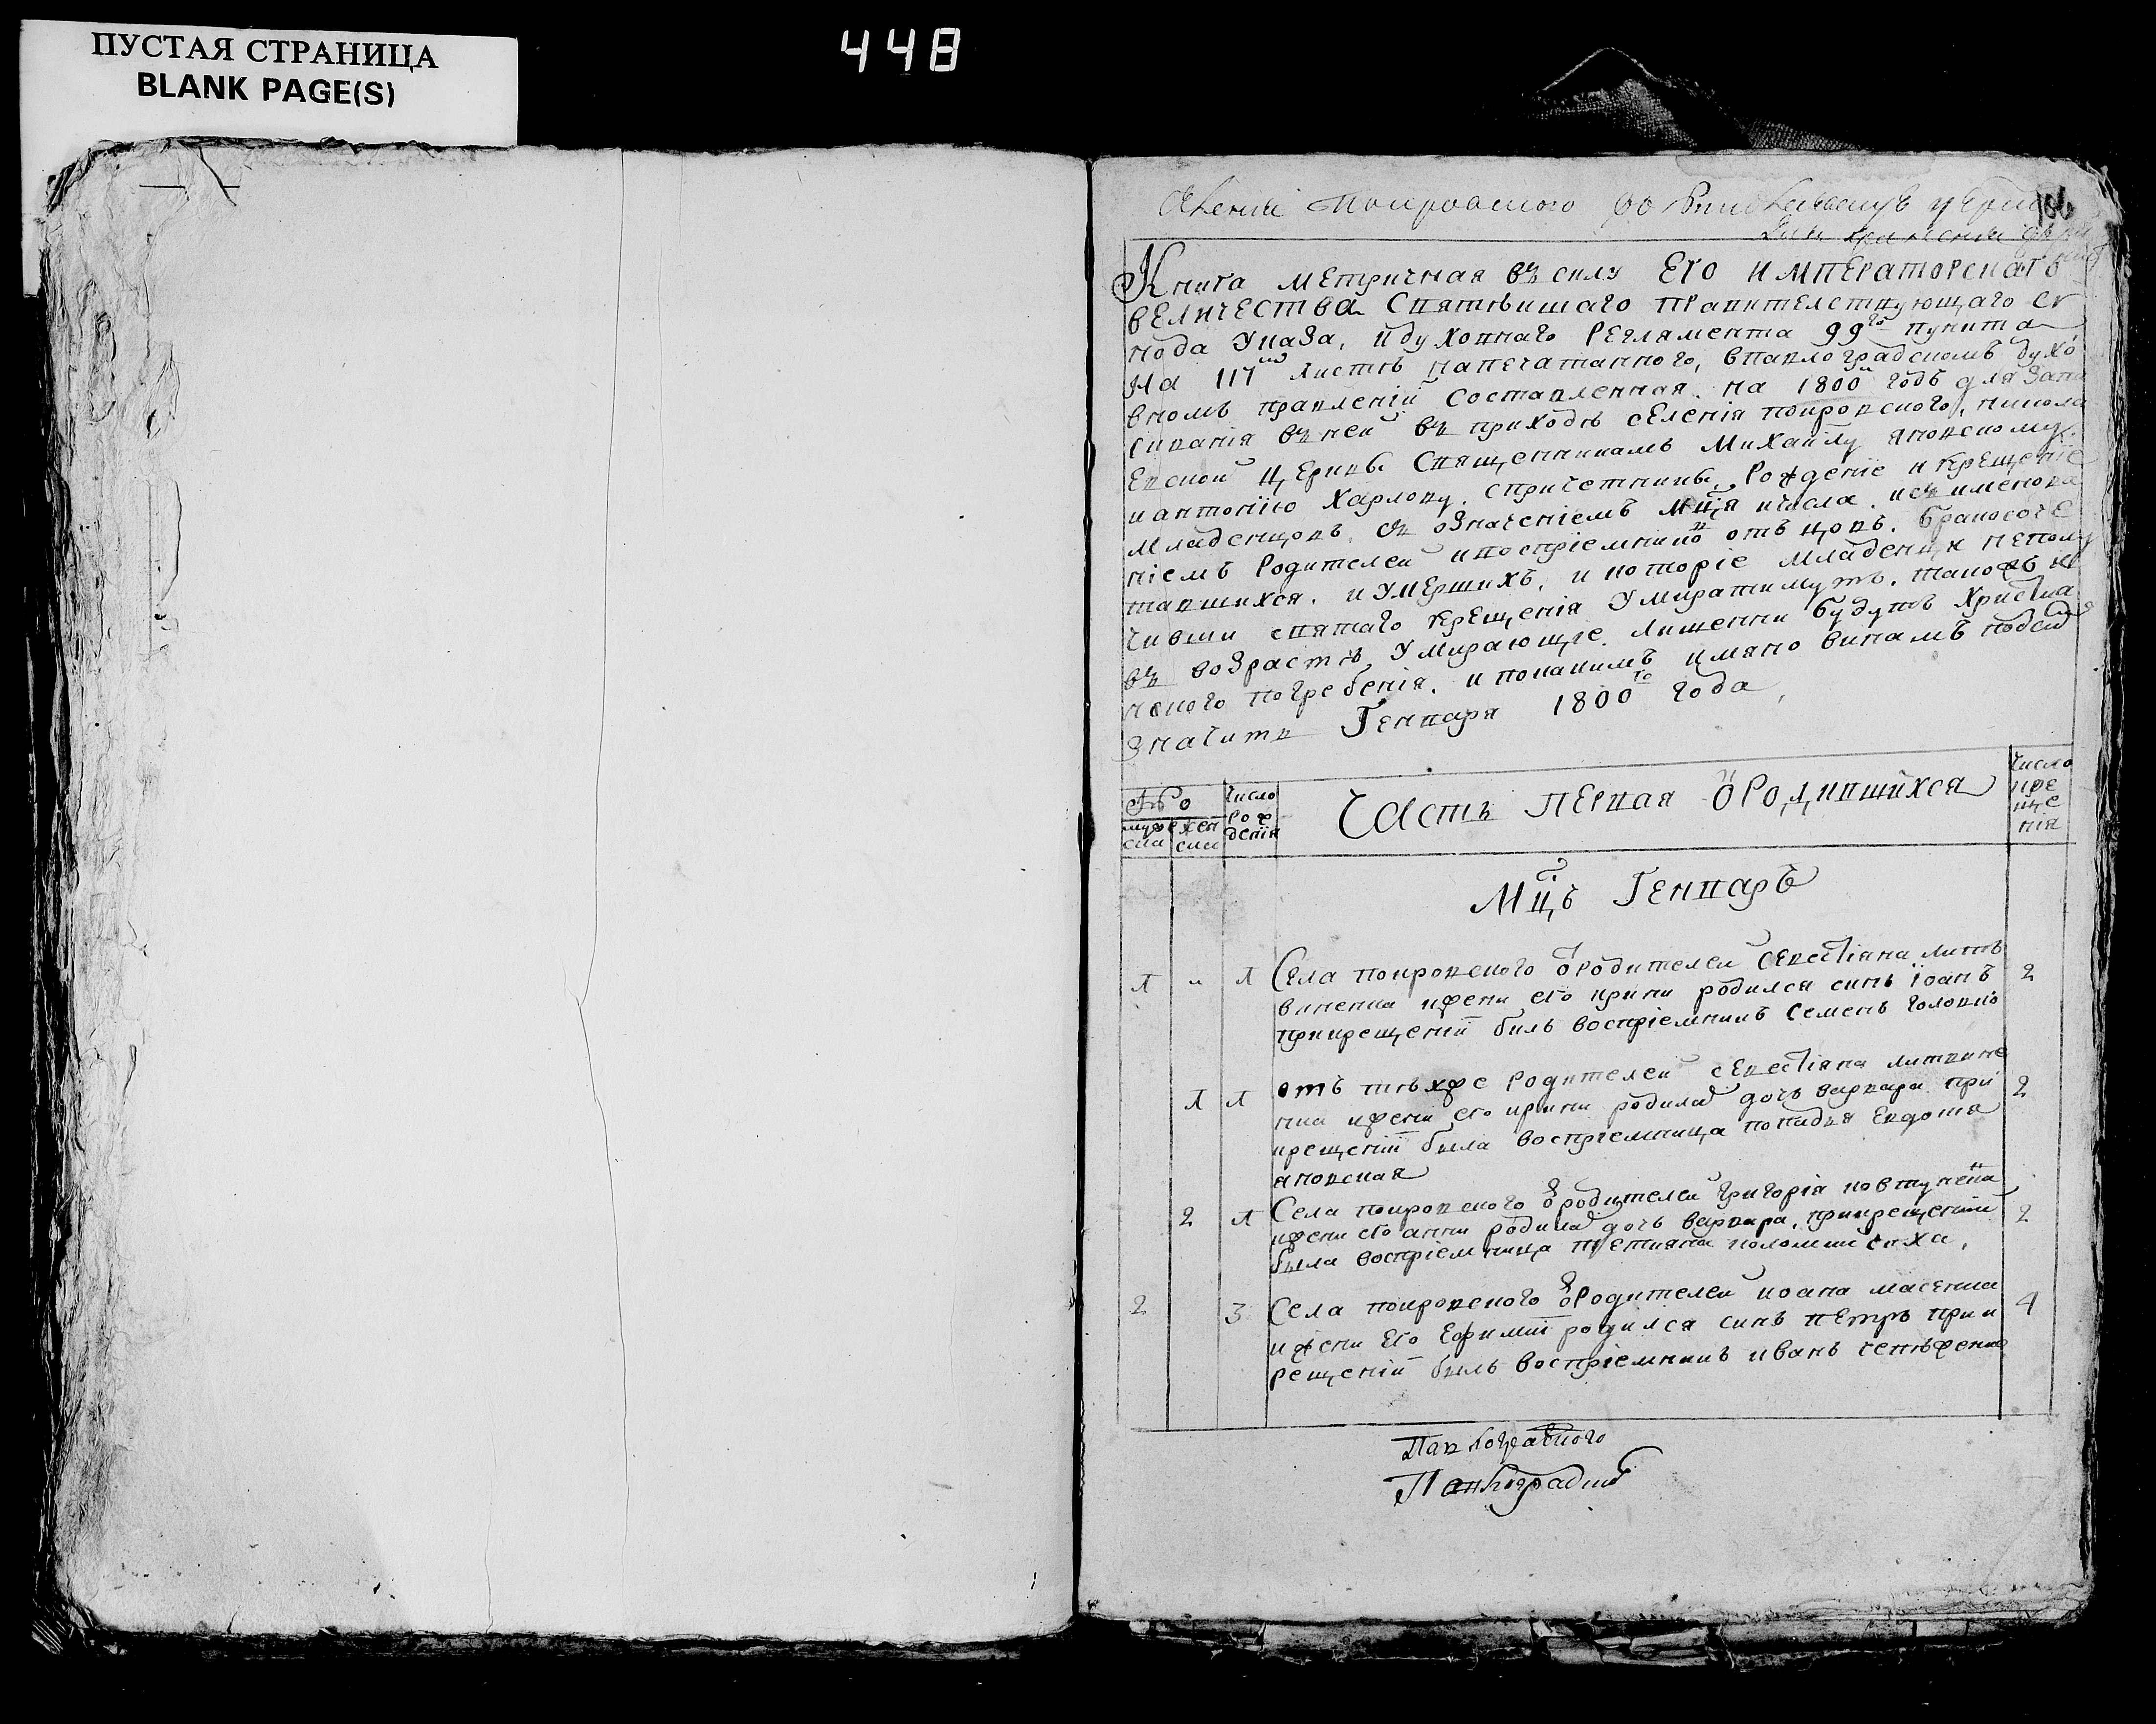 ПУСТАЯ СТРАНИЦА
BLANK PAGE(S)
448
106
Книга метричная въ силу Его императорскаго
величества Святѣишаго правителствующаго Сѵ
нода Указа, и духовнаго Регламента 99го пункта
На 117мъ листѣ напечатанного, впавлоградскомъ духо
вномъ правленіи составленная на 1800й годъ для запи
сиванія въ неи въ приходѣ селенія покровского, никола
евской церкви Священникамъ Михаилу яновскому,
и антонію Харлову, спричетники, Рожденіе и крещеніе
младенцовъ, съ означеніемъ мца и числа, и съ именова
ніемъ Родителеи и воспріемнико отъ цовъ. бракосоче
тавшихся, и умершихъ, и которіе младенци неполу
чивши святаго крещенія умиратимутъ, такожъ и
въ возрастѣ умирающіе лишенни будутъ христиа
нского погребенія, и покакимъ имяно винамъ
значитъ Генваря 1800го года,
№о
мужеска
женски
число рожденія
Часть первая о Родившихся
число крещенія
Мцъ Генварь
1 " 1 Села покровского о Родителеи Севестіяна литъ 2
виненка ижени его ирини родился синъ Іоанъ
прикрещеніи билъ воспріемникъ Семенъ головко
1 1 отъ тѣхже Родителеи Севестіяна литвине 2
нка ижени его ирини родилас дочъ варвара при
крещеніи была воспріемница попадья Евдотя
яновская
2 1 Села покровского о родителеи Григорія ковтунена 2
ижени его анни родилас дочъ варвара, прикрещеніи
была воспріемница Тетияна коломийсиха,
2 3 Села покровского о Родителеи иоана масенка 4
ижени Его Ефиміи родился синъ петръ при к
рещеніи былъ воспріемникъ иванъ
Павлоградского
Павлоградско